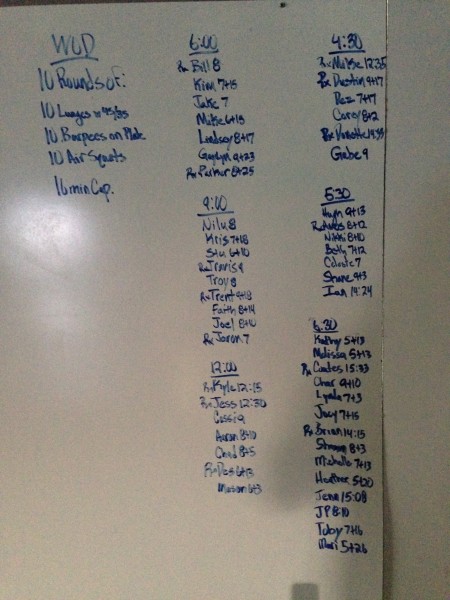 WOD
10 Rounds of:
10 Lunges w 45/25
10 Burpees on Plate
10 Air Squats
16 min Cap.
6:00
Rx Bill 8
Kim 7+15
Jake 7
Mike 6+13
Lindsey 8+17
9+23
Rx Parker 8+25
9:00
Nilu 8
Kris 7+18
Stu 6+10
Rx Travis 9
Troy 8
Rx Trent 9+18
Faith 8+14
Joel 8+10
Rx Jaron 7
12:00
Rx Kyle 12:15
Rx Jess 12:30
Cassi 9
Aaron 8+10
Chad 8+5
Rx Des 6+13
Mason 6+3
4:30
Rx Mike 12:35
Rx Dustin 9+17
Dez 7+17
Corey 8+2
Rx
Gabe 9
5:30
9+13
Rx 8+12
Nikki 8+10
Beth 7+12
Celeste 7
Shane 9+3
Ian 14:24
6:30
Kathy 5+13
Melissa 5+13
Rx Coates 15:33
Char 9+10
Lynda 7+3
Joey 7+15
Rx Brian 14:15
Shawna 8+3
Michelle 7+13
Heather 5+20
Jenn 15:08
JP 8+10
Toby 7+16
Mari 5+26